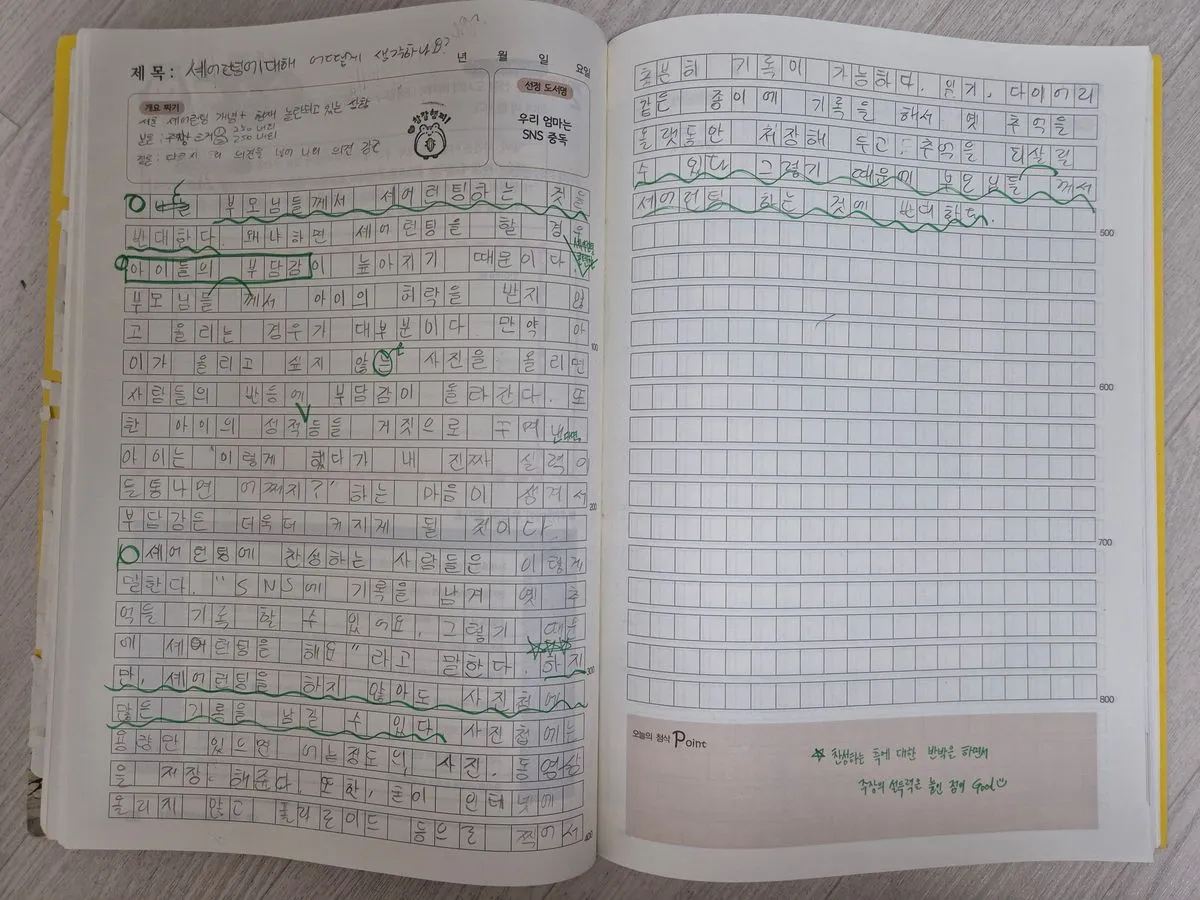 제 목 : 셰어런팅에 대해 어떻게 생각하나요?
년 월 일 요일
개요 짜기
서론 : 셰어런팅 개념 + 현재 논란되고 있는 상황
본론 : 주장 근거
결론 :
창강행펴!
선정 도서명
우리 엄마는
SNS 중독
부모님들께서 셰어런팅하는 것을
반대한다. 왜냐하면 셰어런팅을 할 경우
아이들의 부담감이 높아지기 때문이다.
부모님들 께서 아이의 허락을 받지 않
고 올리는 경우가 대부분이다. 만약 아
이가 올리고 싶지 않는 사진을 올리면
사람들의 반응에 부담감이 올라간다. 또
한 아이의 성적등을 거짓으로 꾸며 낸다면,
아이는 '이렇게 했다가 내 진짜 실력이
들통나면 어쩌지?' 하는 마음이 생겨서
부담감은 더욱더 커지게 될 것이다.
셰어런팅에 찬성하는 사람들은 이렇게
말한다. "SNS에 기록을 남겨 옛 추
억을 기록 할 수 있어요. 그렇기 때문
에 셰어런팅을 해요" 라고 말한다. 하지
만, 셰어런팅을 하지 않아도 사진첩에
많은 기록을 남길 수 있다. 사진첩에는
용량만 있으면 어느정도의 사진, 동영상
을 저장 해준다. 또한, 굳이 인터넷에
올리지 않고 폴라로이드 등으로 찍어서
100
200
300
400
충분히 기록이 가능하다. 일기, 다이어리
같은 종이에 기록을 해서 옛 추억을
오랫동안 저장해 두고 추억을 되살릴
수 있다. 그렇기 때문에 부모님들 께서
셰어런팅 하는 것에 반대한다.
500
600
700
800
오늘의 첨삭 Point
☆ 찬성하는 측에 대한 반박을 하면서
주장의 설득력을 높인 점이 Good